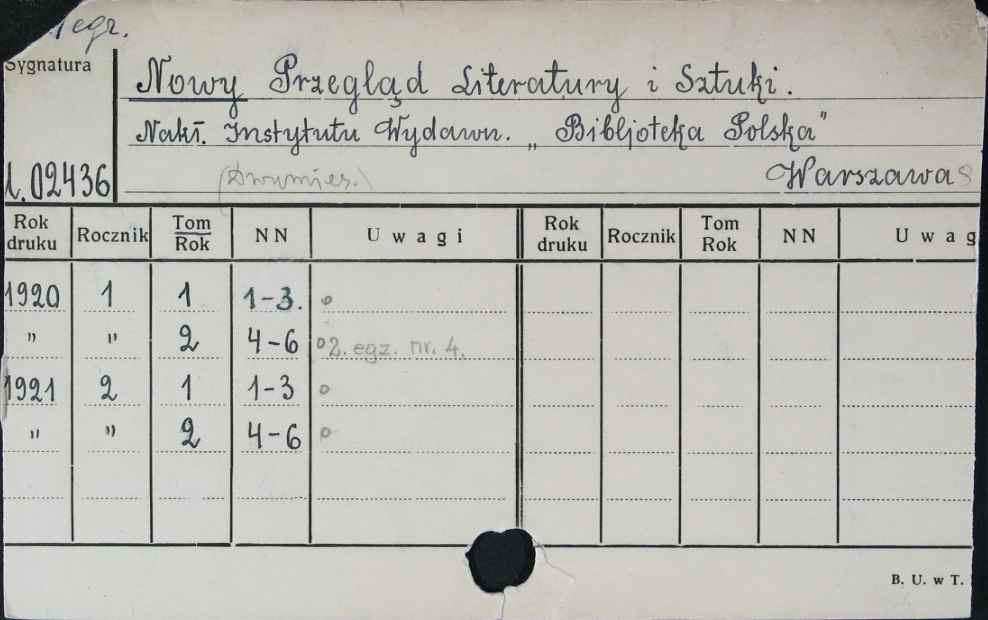 egz.
Sygnatura
Nowy Przegląd Literatury i Sztuki.
Nakł. Instytutu Wydawn. „Bibljoteka Polska"
02436 (Dwumies.) Warszawa 8
Rok druku Rocznik Tom Rok NN Uwagi Rok druku Rocznik Tom Rok NN Uwag
1920 1 1 1-3. o
" " 2 4-6 o 2. egz. nr. 4.
1921 2 1 1-3 o
" " 2 4-6 o
B. U. w T.